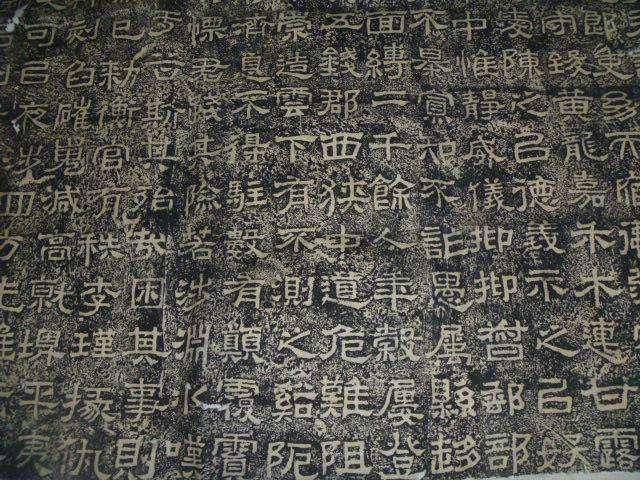 守致黃龍嘉禾木連甘露
愛陳之以德義示之以好
中惟靜威儀抑抑督郵部
不暴寡知不詐愚屬縣趍
面縛二千餘人年穀屢登
五錢郡西狹中道危難阻
崇造雲下有不測之谿阨
濟息不得駐數有顛覆霣
慄君踐其險若涉淵氷嘆
于谷斯其殆哉困其事則
已敕衡官有秩李瑾掾仇
刻臽磪嵬減高就埤平夷
可以夜涉四方